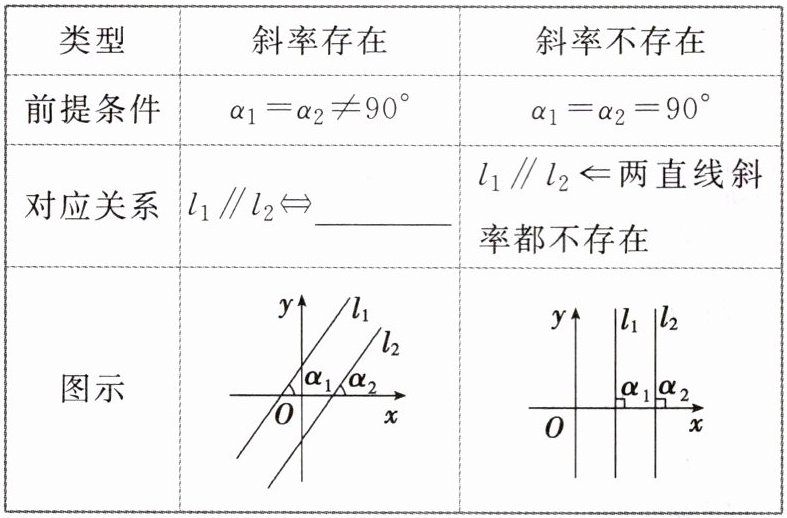 类型 斜率存在 斜率不存在
前提条件 α₁=α₂≠90° α₁=α₂=90°
对应关系 l₁∥l₂⇔______ l₁∥l₂⇐两直线斜
率都不存在
图示
y l₁
l₂
α₁ α₂
O x
y l₁ l₂
α₁ α₂
O x